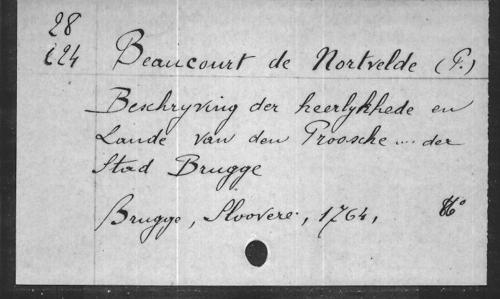 28
C24
Beaucourt de Nortvelde (P.)
Beschryving der heerlykhede en
Lande van den Proossche .... der
Stad Brugge
Brugge, Sloovere, 1764,